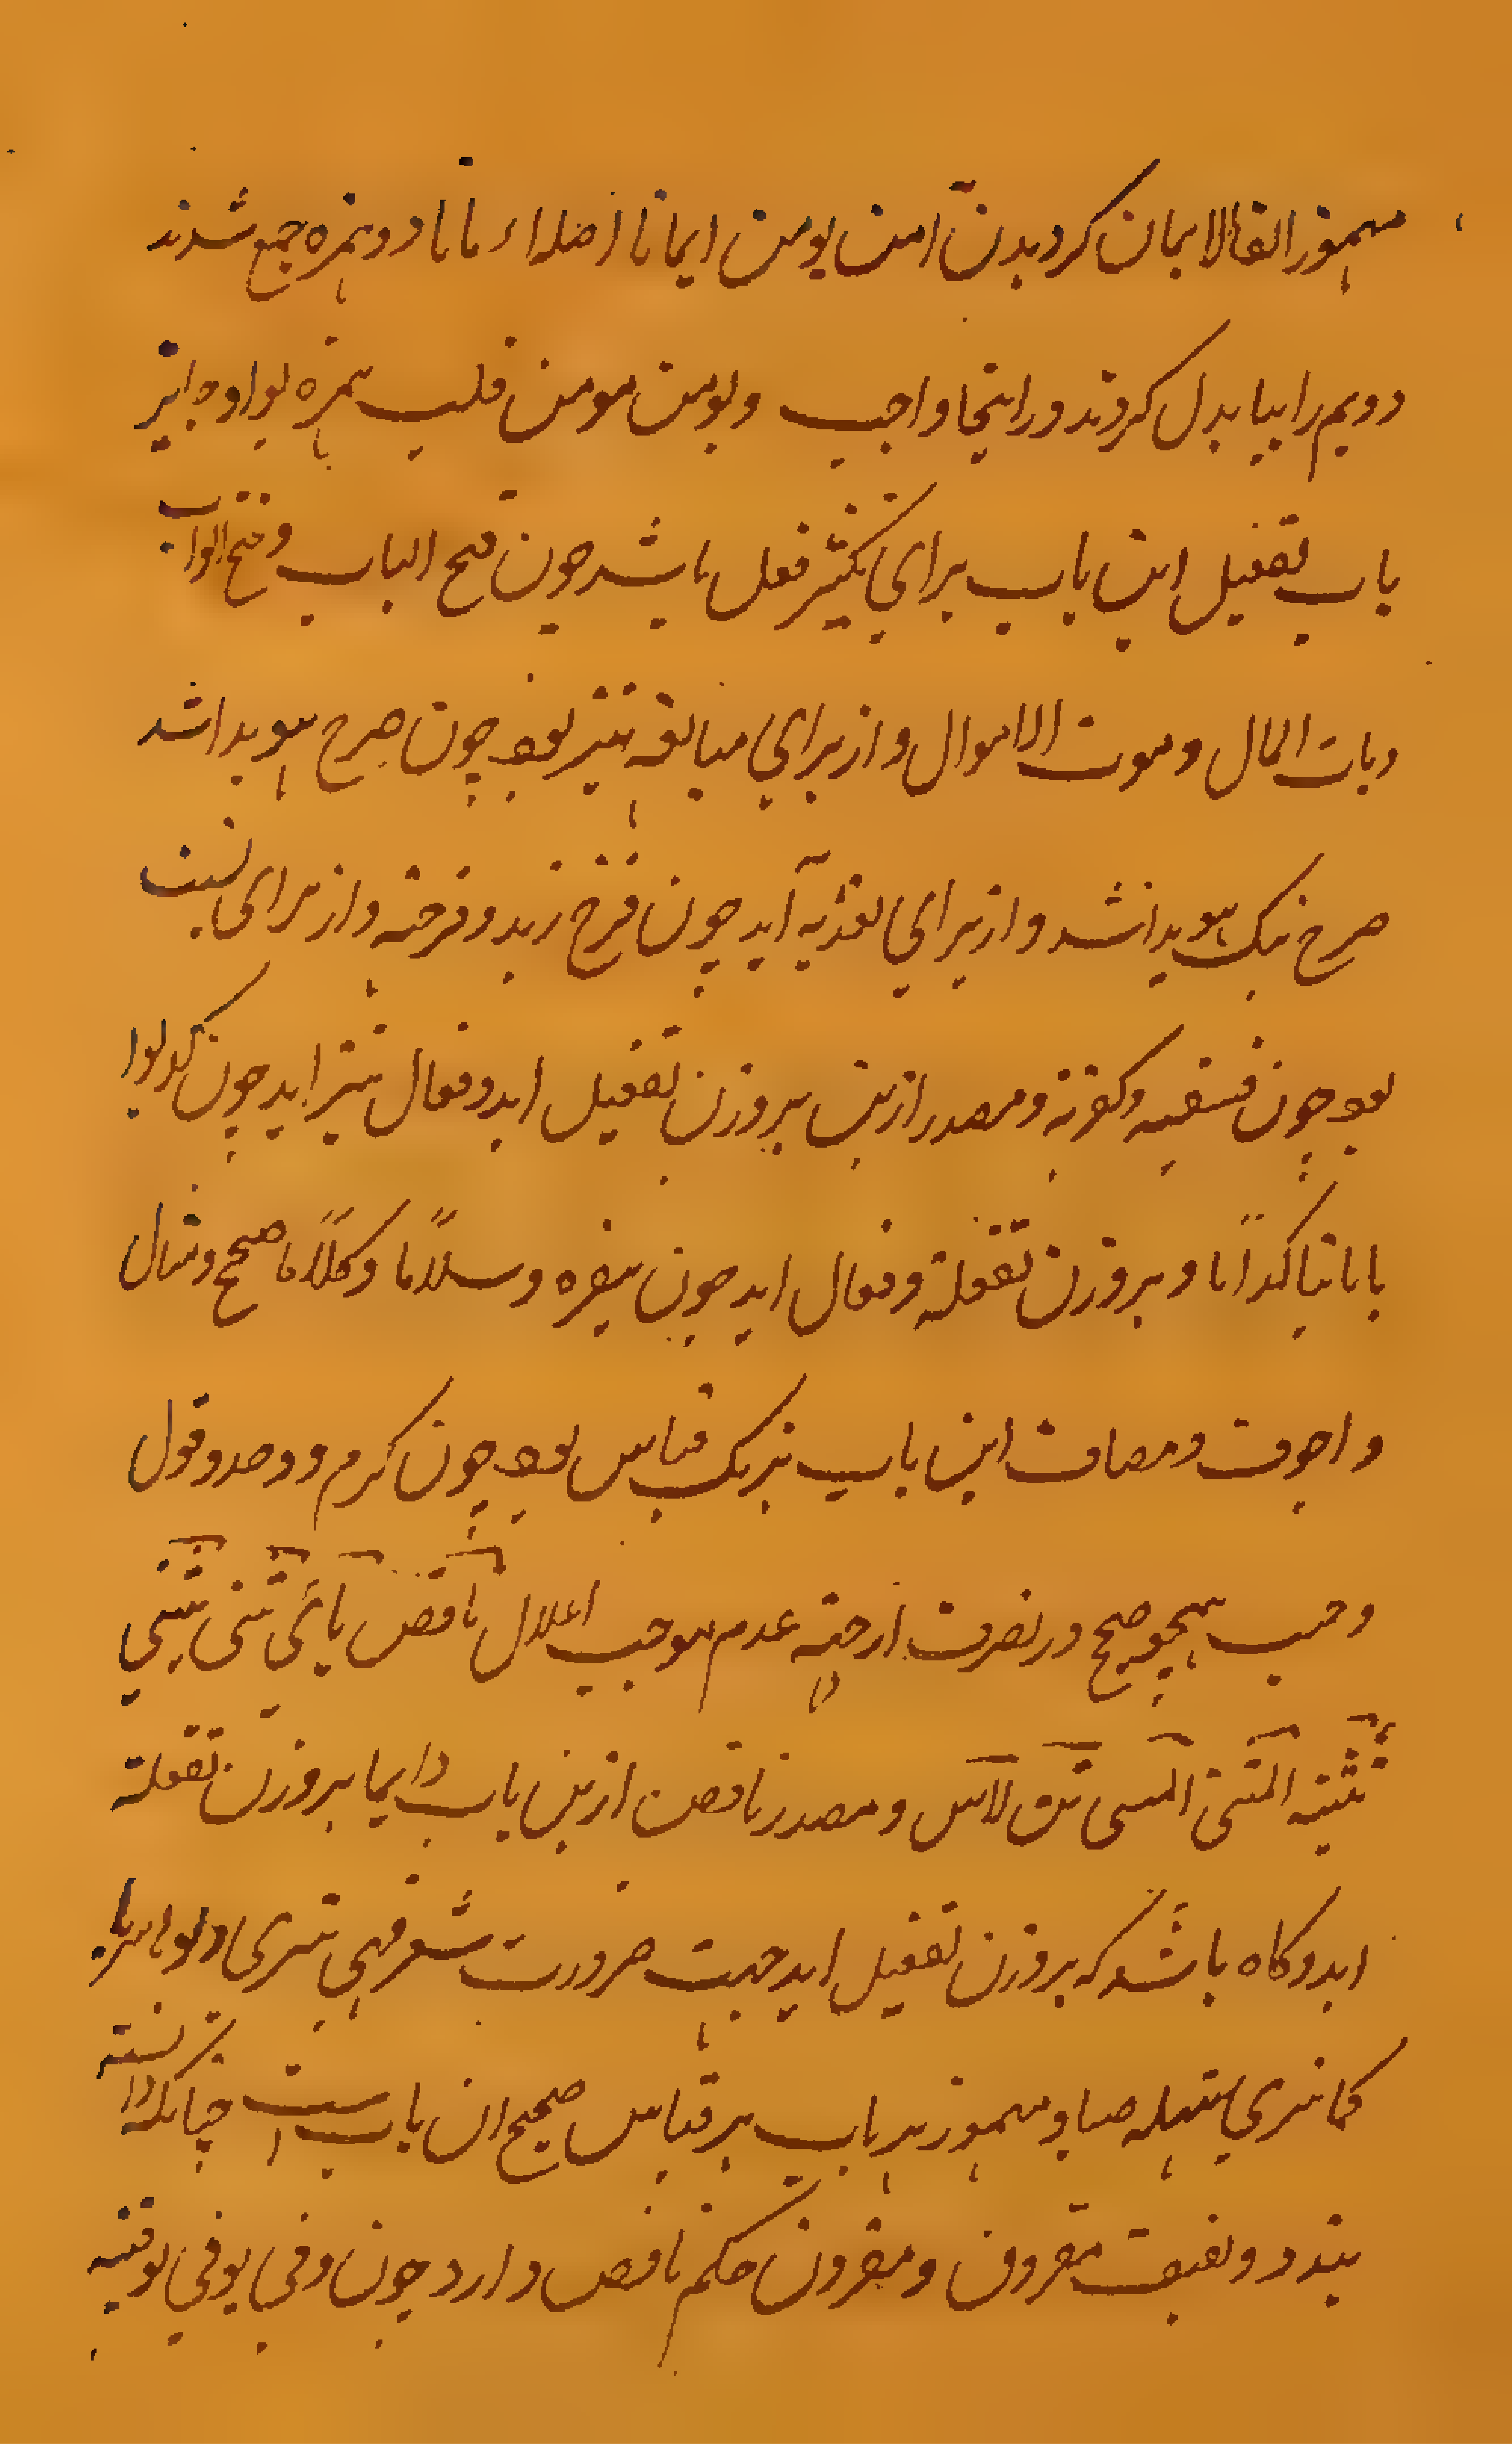 مهموز الفا الایمان کرویدن آمن یومن ایمانا اصله اءمانا دو همزه جمع شدند
دویم را بیا بدل کردند در اینجا واجب و یومن مومن قلب همزه بواو جایز
باب تفعیل این باب برای تکثیر فعل باشد چون فتح الباب و فتح الابواب
و مات المال و موت الاموال و از برای مبالغه نیز بود چون صرح هویدا شد
صرح نیک هویدا شد و از برای تعدیه آید چون فرح زید و فرحته و از برای نسبت
بود چون فسقته و کفرته و مصدر ازین بر وزن تفعیل اید و فعال نیز اید چون کذبوا
بایاتنا کذابا و بر وزن تفعلة و فعال اید چون تبصره و سلاما و کلاما صحیح و مثال
و اجوف و مضاعف این باب بر یک قیاس بود چون کرم و وحد و قول
و حبب همچو صحیح در تصرف از جهته عدم موجب اعلال ناقص یائی ثنی یثنی
تثنیه المثنی المثنی ثن لاتثن و مصدر ناقص ازین باب دایما بر وزن تفعلة
اید و کاه باشد که بر وزن تفعیل اید جهت ضرورت شعر فهی تنزی دلوها تنزیا
کما تنزی شهلة صبیا و مهموز هر باب بر قیاس صحیح ان باب است چنانکه دانسته
شد و لفیف مقرون و مفروق حکم ناقص دارد چون وفی یوفی توفیه